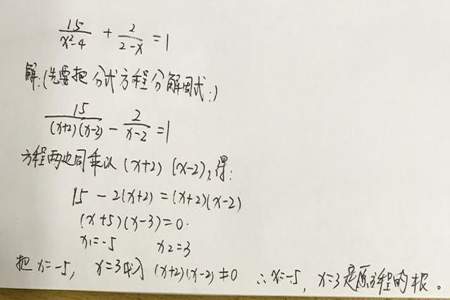 15/(x²-4) + 2/(2-x) = 1
解:(先要把分式方程分解因式:)
15/((x+2)(x-2)) - 2/(x-2) = 1
方程两边同乘以(x+2)(x-2),得:
15 - 2(x+2) = (x+2)(x-2)
(x+5)(x-3)=0.
x₁=-5 x₂=3
把x=-5, x=3代入(x+2)(x-2)≠0 ∴x=-5, x=3是原方程的根。